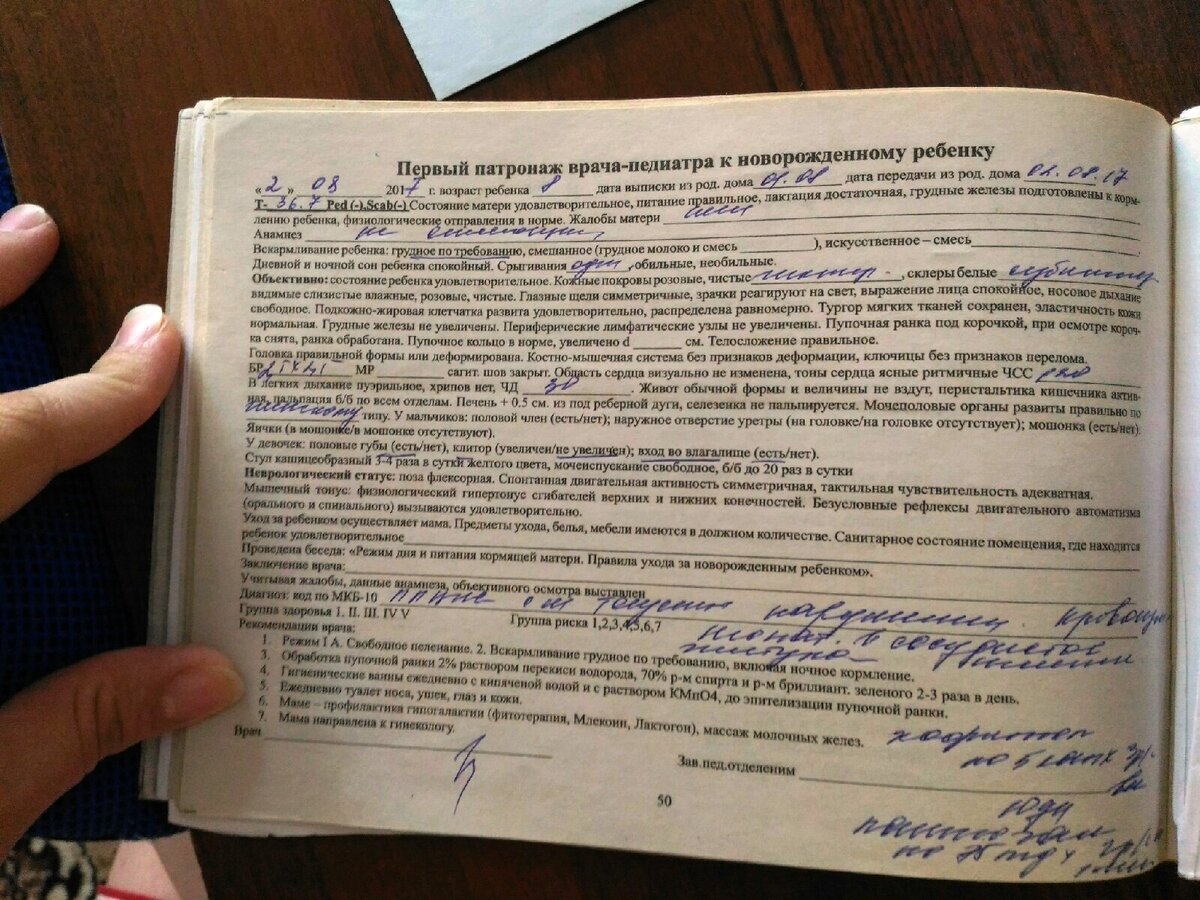 Первый патронаж врача-педиатра к новорожденному ребенку
« 2 » 08 2017 г. возраст ребенка 8 дата выписки из род. дома 01.08 дата передачи из род. дома 02.08.17
Т- 36.7 Ped (-),Scab(-) Состояние матери удовлетворительное, питание правильное, лактация достаточная, грудные железы подготовлены к корм-
лению ребенка, физиологические отправления в норме. Жалобы матери нет
Анамнез не отягощен
Вскармливание ребенка: грудное по требованию, смешанное (грудное молоко и смесь ), искусственное – смесь
Дневной и ночной сон ребенка спокойный. Срыгивания , обильные, необильные.
Объективно: состояние ребенка удовлетворительное. Кожные покровы розовые, чистые , склеры белые
видимые слизистые влажные, розовые, чистые. Глазные щели симметричные, зрачки реагируют на свет, выражение лица спокойное, носовое дыхание
свободное. Подкожно-жировая клетчатка развита удовлетворительно, распределена равномерно. Тургор мягких тканей сохранен, эластичность кожи
нормальная. Грудные железы не увеличены. Периферические лимфатические узлы не увеличены. Пупочная ранка под корочкой, при осмотре короч-
ка снята, ранка обработана. Пупочное кольцо в норме, увеличено d см. Телосложение правильное.
Головка правильной формы или деформирована. Костно-мышечная система без признаков деформации, ключицы без признаков перелома.
БР МР сагит. шов закрыт. Область сердца визуально не изменена, тоны сердца ясные ритмичные ЧСС
В легких дыхание пуэрильное, хрипов нет, ЧД 38 . Живот обычной формы и величины не вздут, перистальтика кишечника актив-
ная, пальпация б/б по всем отделам. Печень + 0.5 см. из под реберной дуги, селезенка не пальпируется. Мочеполовые органы развиты правильно по
женскому типу. У мальчиков: половой член (есть/нет); наружное отверстие уретры (на головке/на головке отсутствует); мошонка (есть/нет).
Яички (в мошонке/в мошонке отсутствуют).
У девочек: половые губы (есть/нет), клитор (увеличен/не увеличен); вход во влагалище (есть/нет).
Стул кашицеобразный 3-4 раза в сутки желтого цвета, мочеиспускание свободное, б/б до 20 раз в сутки
Неврологический статус: поза флексорная. Спонтанная двигательная активность симметричная, тактильная чувствительность адекватная.
Мышечный тонус: физиологический гипертонус сгибателей верхних и нижних конечностей. Безусловные рефлексы двигательного автоматизма
(орального и спинального) вызываются удовлетворительно.
Уход за ребенком осуществляет мама. Предметы ухода, белья, мебели имеются в должном количестве. Санитарное состояние помещения, где находится
ребенок удовлетворительное
Проведена беседа: «Режим дня и питания кормящей матери. Правила ухода за новорожденным ребенком».
Заключение врача:
Учитывая жалобы, данные анамнеза, объективного осмотра выставлен
Диагноз: код по МКБ-10
Группа здоровья I. II. III. IV V Группа риска 1,2,3,4,5,6,7
Рекомендации врача:
1. Режим I А. Свободное пеленание. 2. Вскармливание грудное по требованию, включая ночное кормление.
3. Обработка пупочной ранки 2% раствором перекиси водорода, 70% р-м спирта и р-м бриллиант. зеленого 2-3 раза в день.
4. Гигиенические ванны ежедневно с кипяченой водой и с раствором КМпО4, до эпителизации пупочной ранки.
5. Ежедневно туалет носа, ушек, глаз и кожи.
6. Маме – профилактика гипогалактии (фитотерапия, Млекоин, Лактогон), массаж молочных желез.
7. Мама направлена к гинекологу.
Врач
Зав.пед.отделеним
50